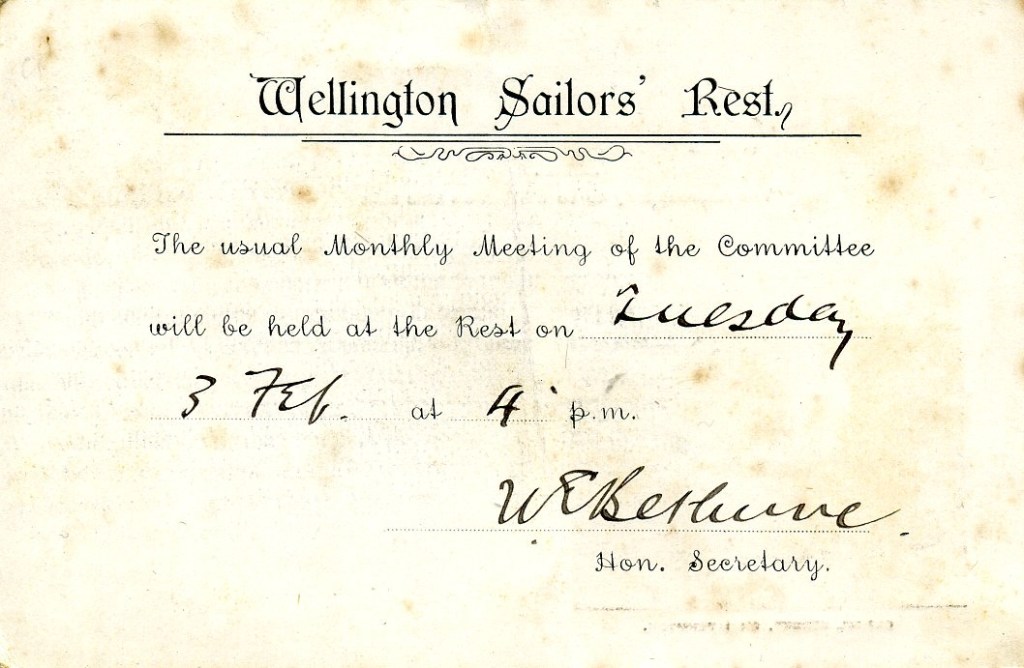 Wellington Sailors' Rest.
The usual Monthly Meeting of the Committee
will be held at the Rest on Tuesday
3 Feb. at 4 p.m.
W E Bethune.
Hon. Secretary.